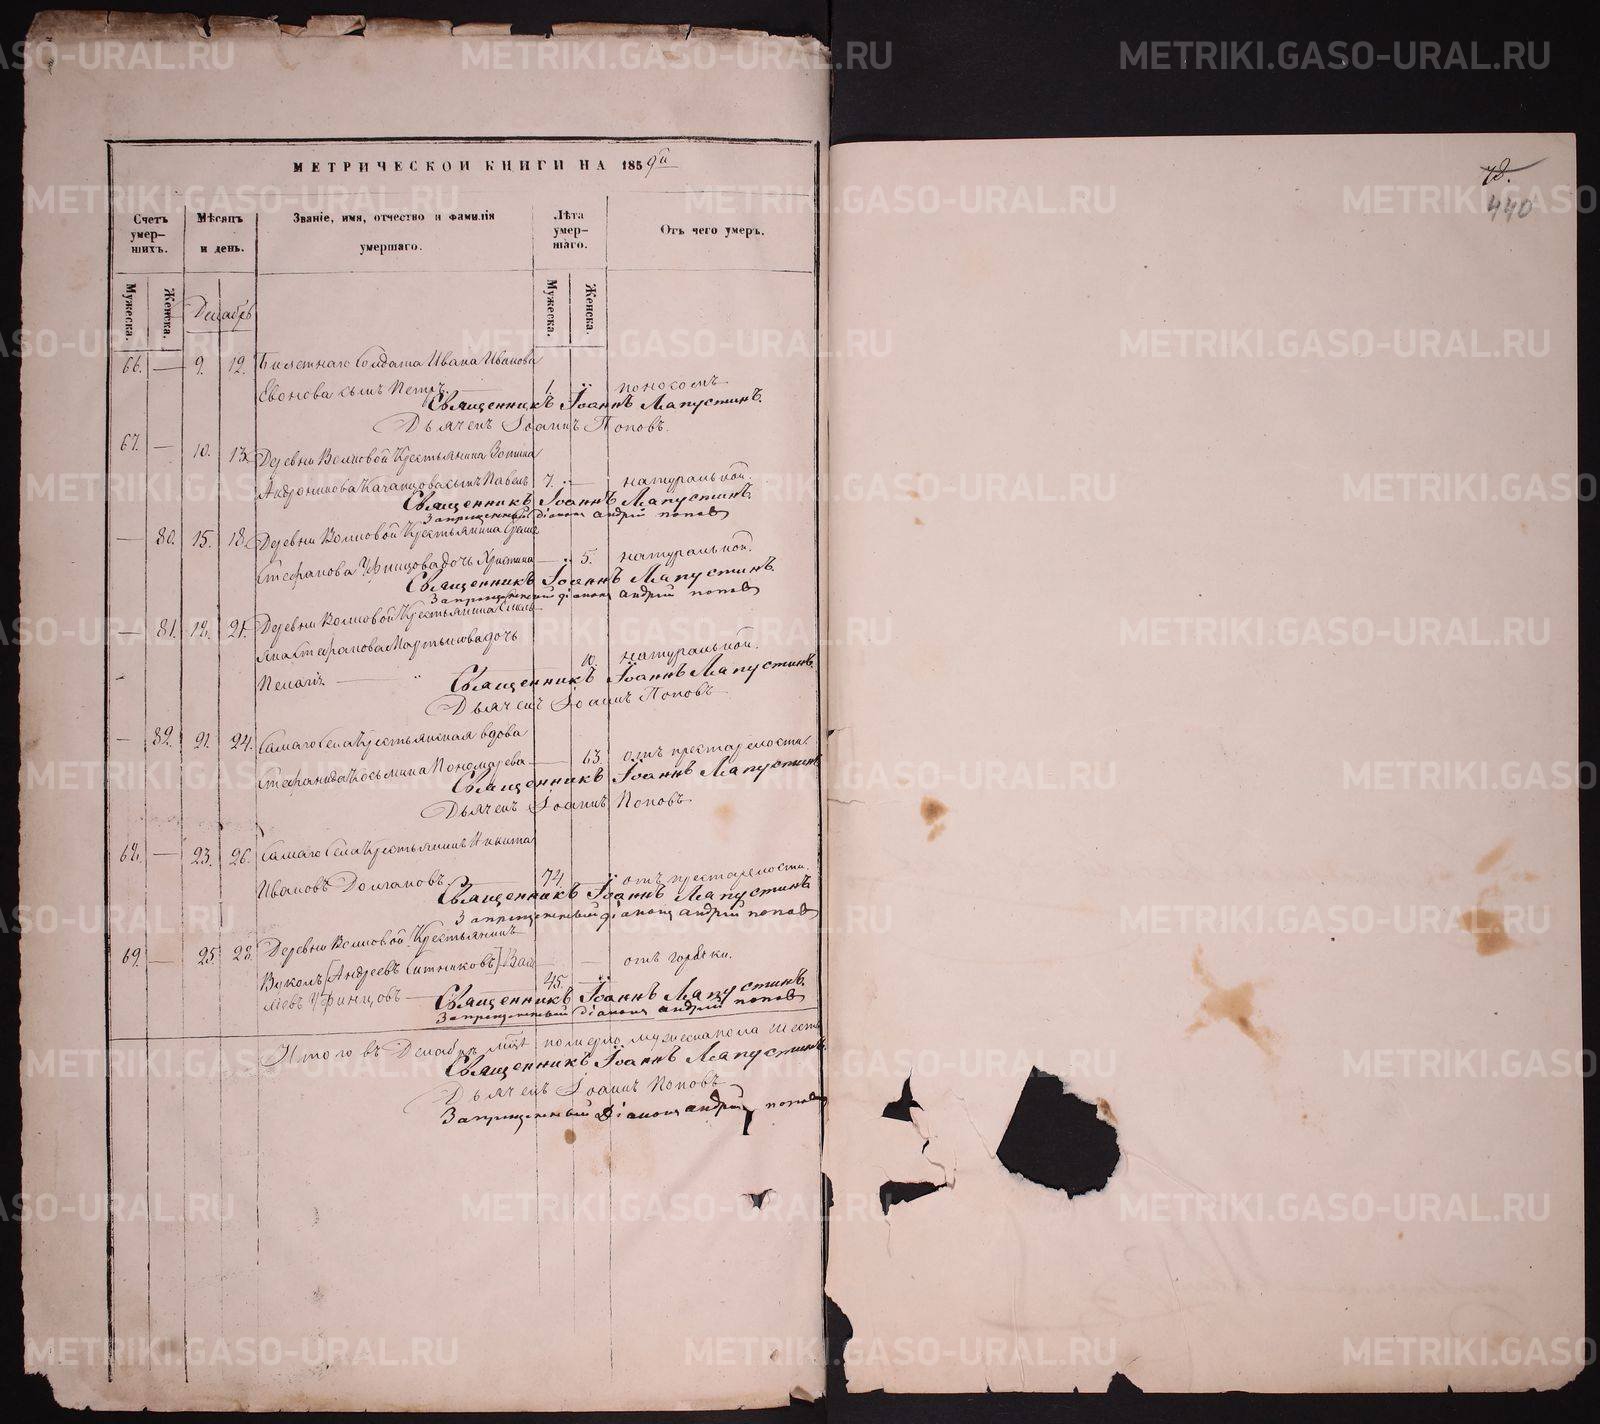 МЕТРИЧЕСКОЙ КНИГИ НА 1859й
Счетъ умер-шихъ.
Мѣсяцъ и день.
Званіе, имя, отчество и фамилія умершаго.
Лѣта умер-шаго.
Отъ чего умеръ.
Мужеска.
Женска.
Декабрь
Мужеска.
Женска.
66. — 9. 12. Билетнаго Солдата Ивана Иванова
сынъ Петръ. — 1. поносомъ
Священникъ Іоаннъ Лапустинъ.
Дьячекъ Іоаннъ Поповъ.
67. — 10. 13. Деревни Волковой Крестьянина
Андроникова сынъ Павелъ 7. — натуральной.
Священникъ Іоаннъ Лапустинъ.
Запрещенный діаконъ андрій поповъ
— 80. 15. 18. Деревни Волковой Крестьянина
Стефанова Уфинцова дочь Христина — 5. натуральной.
Священникъ Іоаннъ Лапустинъ.
Запрещенный діаконъ андрій поповъ
— 81. 18. 21. Деревни Волковой Крестьянина
Стефанова Мартьянова дочь
Пелагія — 10. натуральной.
Священникъ Іоаннъ Лапустинъ.
Дьячекъ Іоаннъ Поповъ
— 82. 21. 24. Самаго Села Крестьянская вдова
Стефанида Косьмина Пономарева — 63. отъ престарелости.
Священникъ Іоаннъ Лапустинъ
Дьячекъ Іоаннъ Поповъ.
68. — 23. 26. Самаго Села Крестьянинъ Никита
Ивановъ Долгановъ. 74. отъ престарелости.
Священникъ Іоаннъ Лапустинъ
Запрещенный діаконъ андрій поповъ
69. — 25. 28. Деревни Волковой Крестьянинъ
Вуколъ [Андреевъ Ситниковъ] Васи — — отъ горячки.
льевъ Уфинцовъ — 45.
Священникъ Іоаннъ Лапустинъ.
Запрещенный діаконъ андрій поповъ
Итого въ Декабрѣ м͠цѣ померло мужеска пола шесть
Священникъ Іоаннъ Лапустинъ.
Дьячекъ Іоаннъ Поповъ
Запрещенный Діаконъ андрій поповъ
78.
440
METRIKI.GASO-URAL.RU